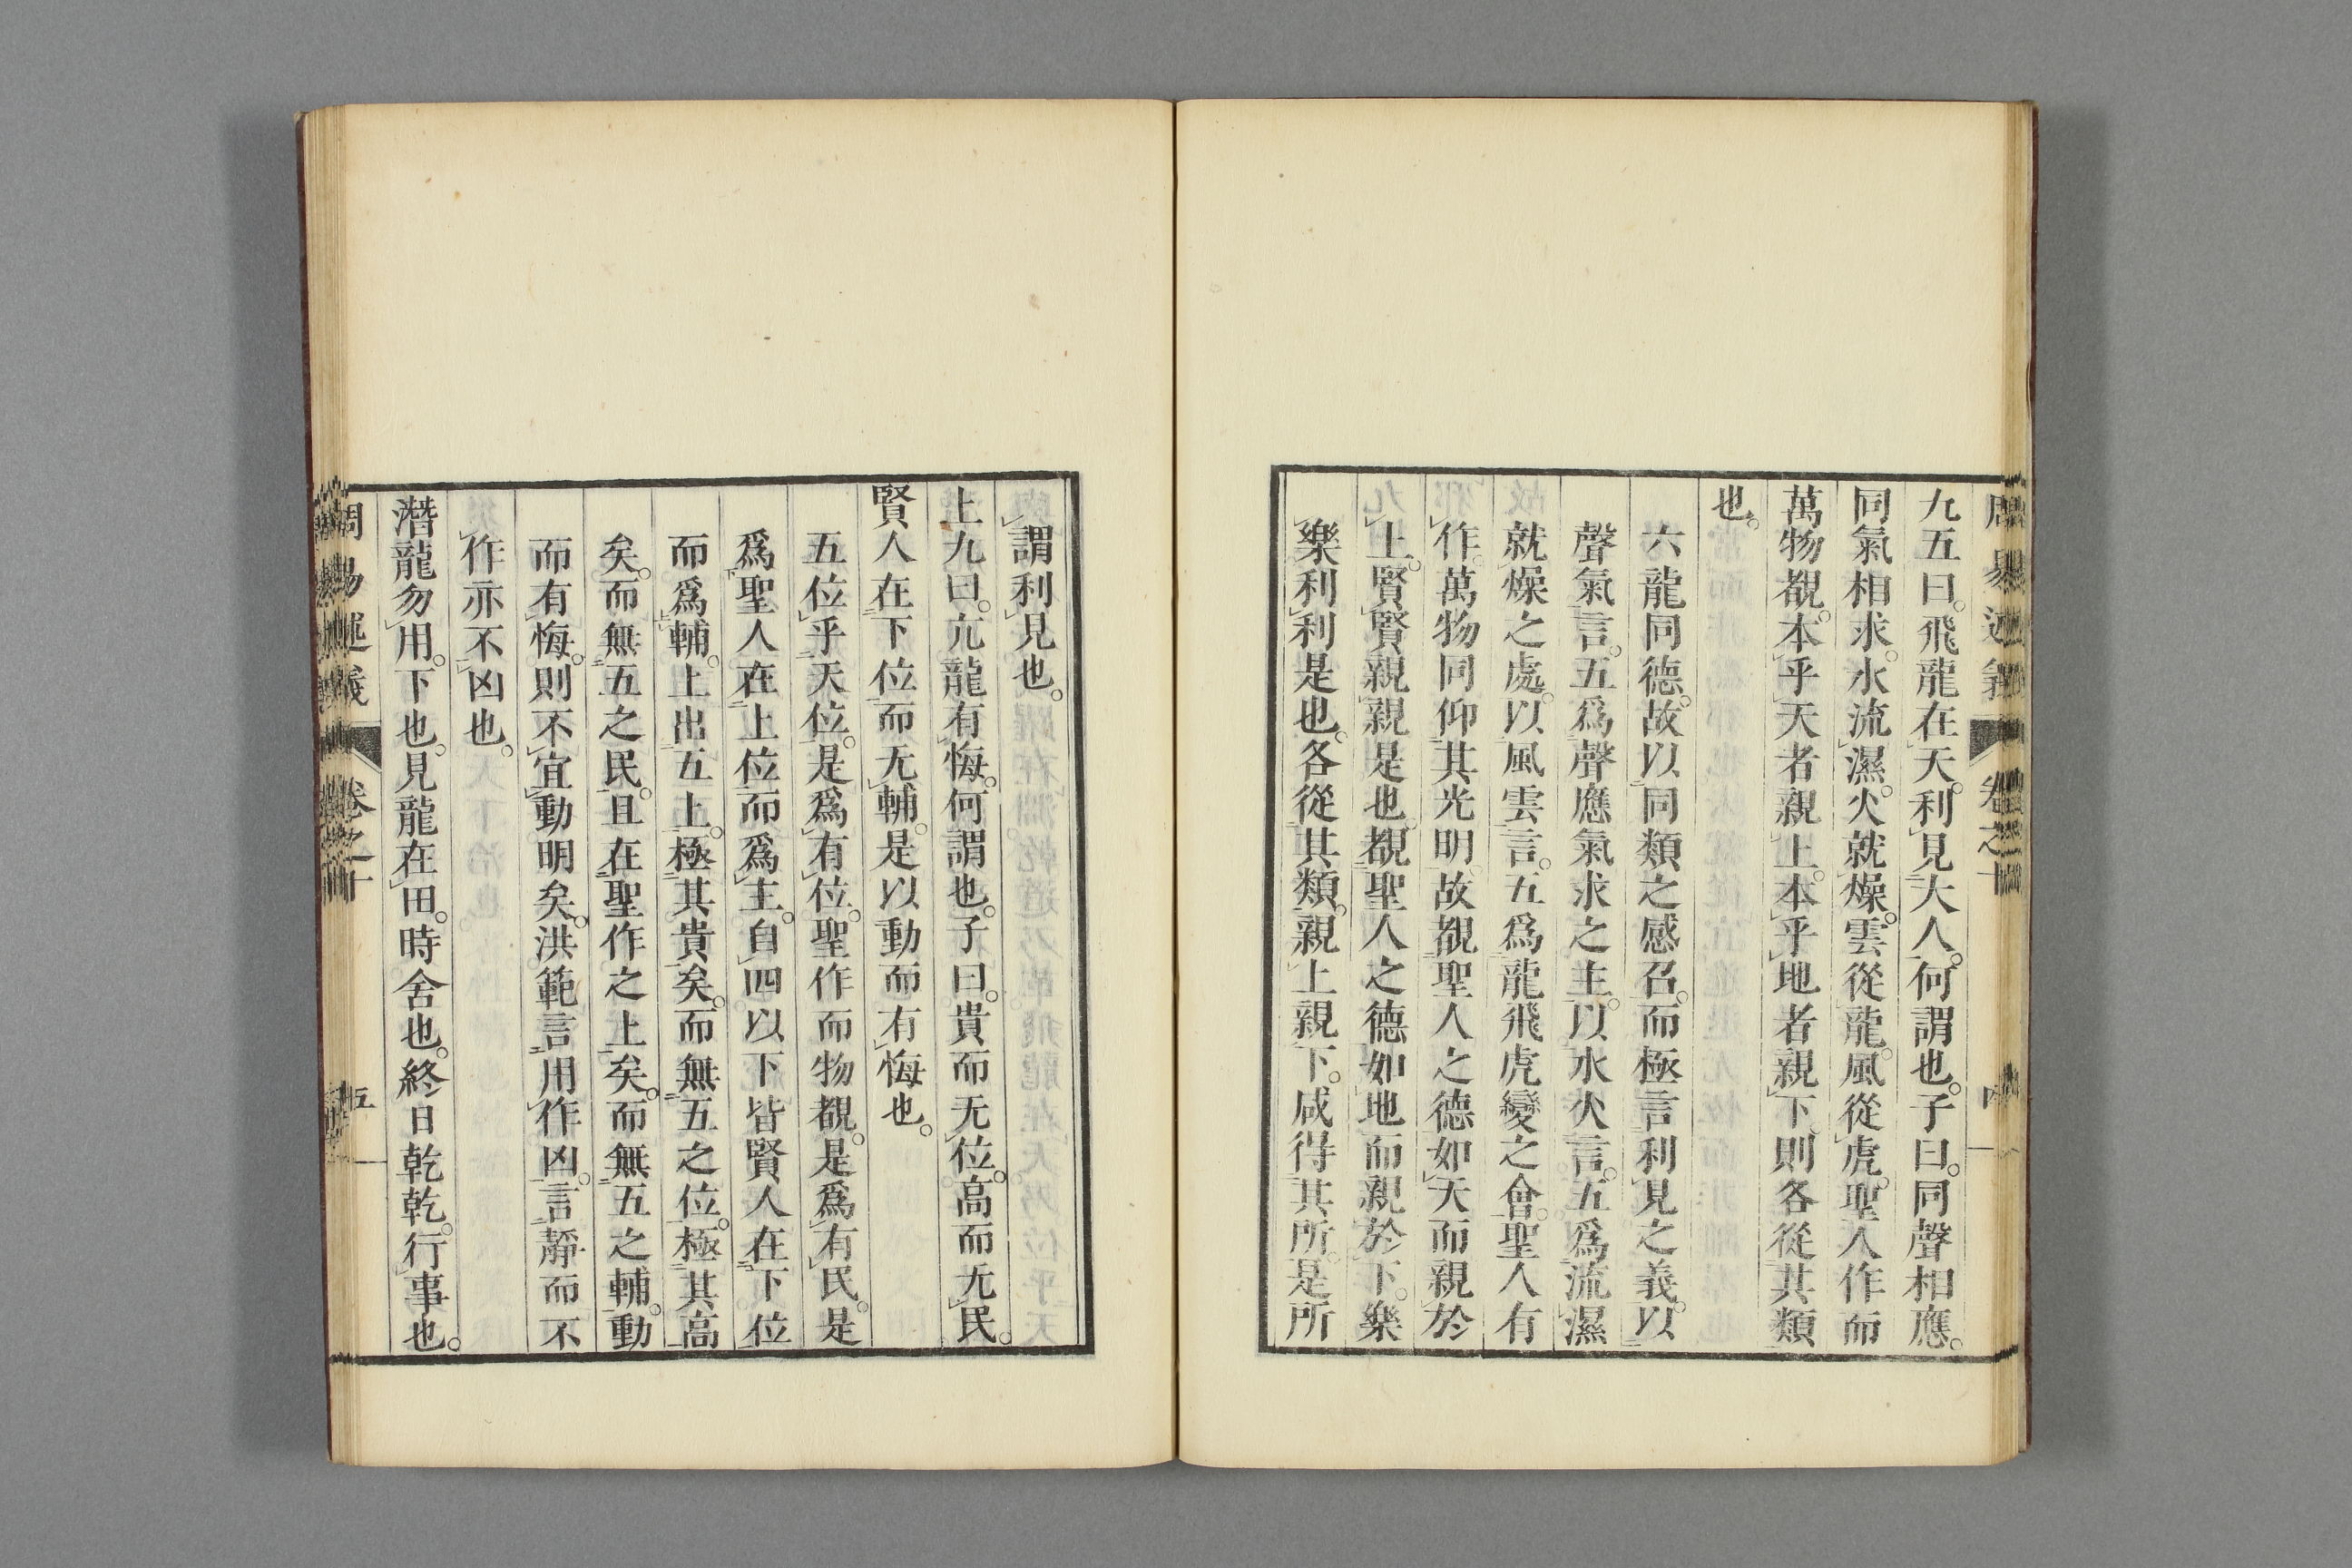 九五曰。飛龍在天。利見大人。何謂也。子曰。同聲相應。
同氣相求。水流濕。火就燥。雲從龍。風從虎。聖人作而
萬物覩。本乎天者親上。本乎地者親下。則各從其類
也。
六龍同德。故以同類之感召。而極言利見之義。以
聲氣言。五爲聲應氣求之主。以水火言。五爲流濕
就燥之處。以風雲言。五爲龍飛虎變之會。聖人有
作。萬物同仰其光明。故覩聖人之德如天而親於
上。賢賢親親是也。覩聖人之德如地而親於下。樂
樂利利是也。各從其類。親上親下。咸得其所。是所
謂利見也。
上九曰。亢龍有悔。何謂也。子曰。貴而无位。高而无民。
賢人在下位而无輔。是以動而有悔也。
五位乎天位。是爲有位。聖作而物覩。是爲有民。是
爲聖人在上位而爲主。自四以下皆賢人在下位
而爲輔。上出五上。極其貴矣。而無五之位。極其高
矣。而無五之民。且在聖作之上矣。而無五之輔。動
而有悔。則不宜動明矣。洪範言用作凶。言靜而不
作亦不凶也。
潛龍勿用。下也。見龍在田。時舍也。終日乾乾。行事也。
周易述義
卷之十
五